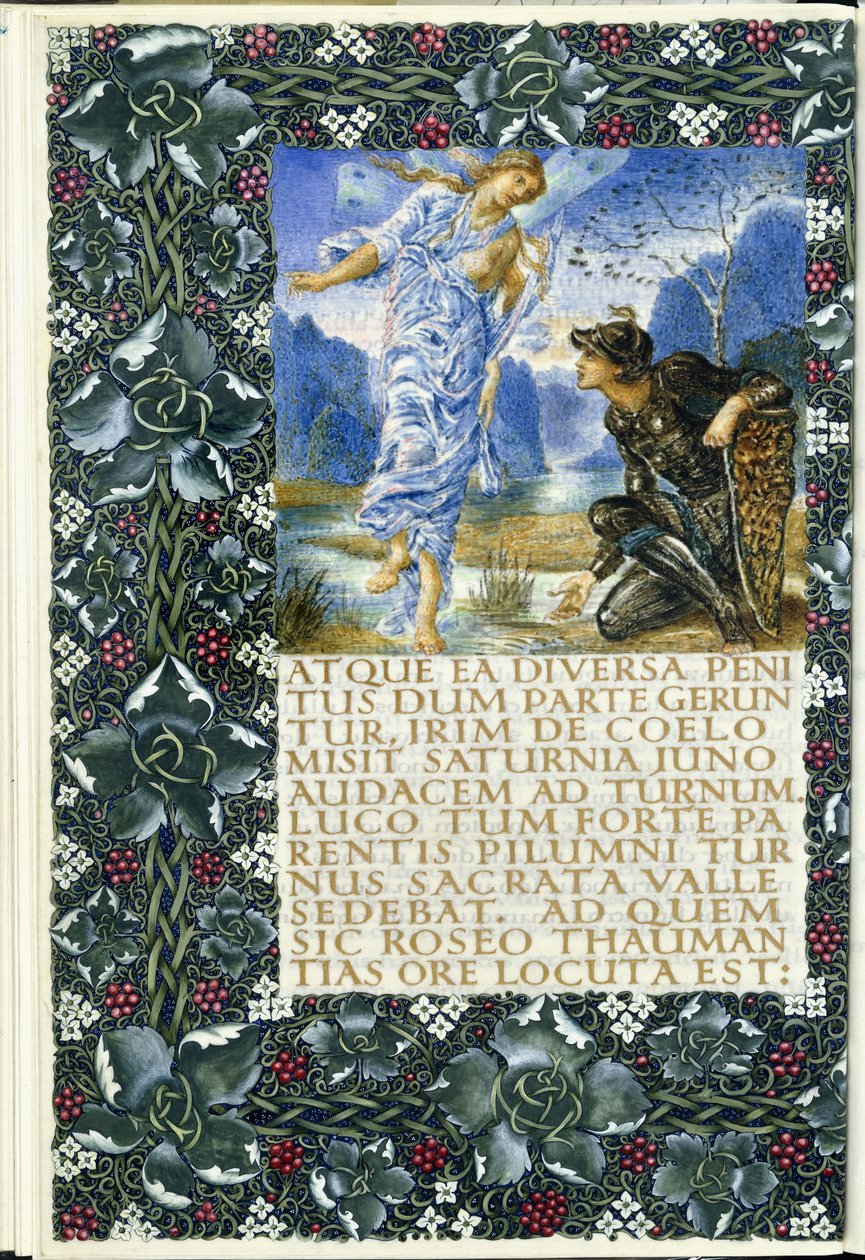 ATQUE EA DIVERSA PENI
TUS DUM PARTE GERUN
TUR, IRIM DE COELO
MISIT SATURNIA JUNO
AUDACEM AD TURNUM.
LUCO TUM FORTE PA
RENTIS PILUMNI TUR
NUS SACRATA VALLE
SEDEBAT. AD QUEM
SIC ROSEO THAUMAN
TIAS ORE LOCUTA EST: